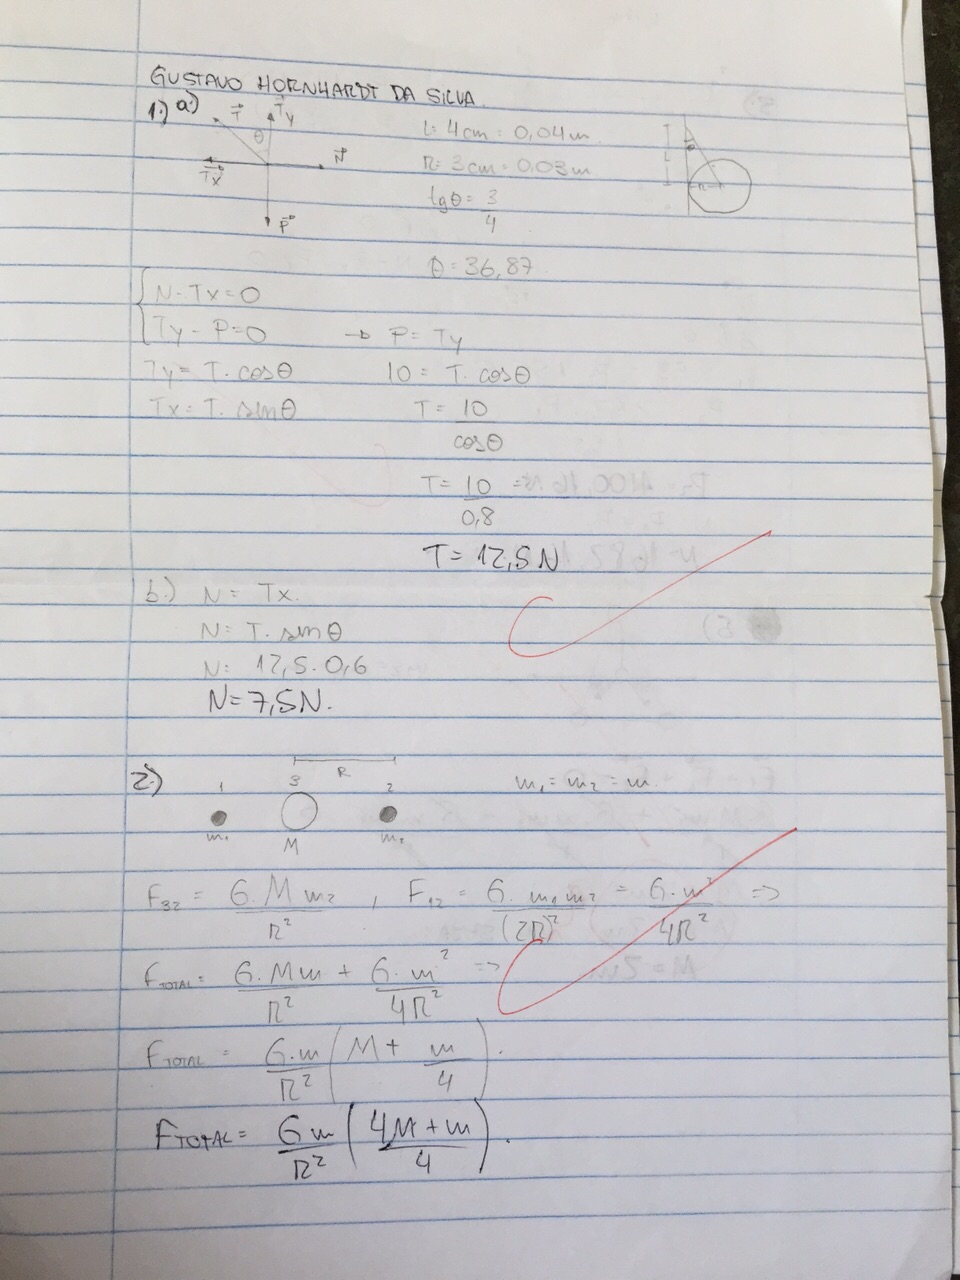 GUSTAVO HORNHARDT DA SILVA.
1.) a.) T Ty L= 4cm = 0,04m
θ N R= 3cm = 0,03m
Tx tgθ = 3/4
P
θ = 36,87
N - Tx = 0
Ty - P = 0 → P = Ty
Ty = T. cosθ 10 = T. cosθ
Tx = T. sinθ T = 10/cosθ
T = 10/0,8 =
T = 12,5 N
b.) N = Tx.
N = T. sinθ
N = 12,5. 0,6
N = 7,5N.
2.) 1 3 R 2 m₁ = m₂ = m.
m₁ M m₂
F₃₂ = G. M m₂/R² , F₁₂ = G. m₁ m₂/(2R)² = G. m²/4R² =>
FTOTAL = G. M m/R² + G. m²/4R² =>
FTOTAL = G.m/R² (M + m/4).
FTOTAL = G m/R² (4M + m/4).